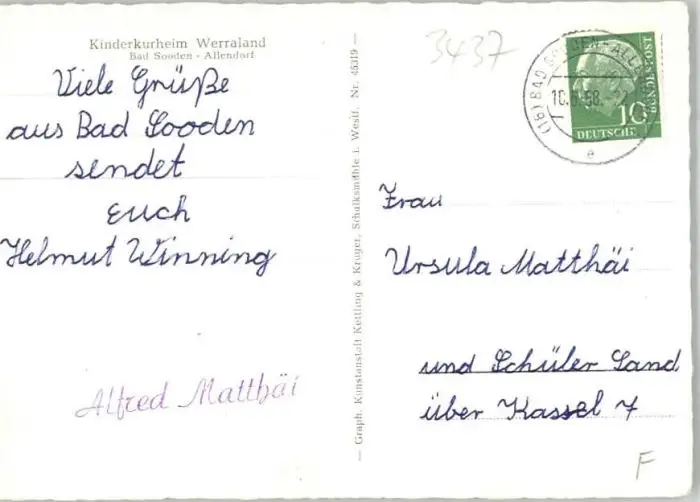 Kinderkurheim Werraland
Bad Sooden - Allendorf
Viele Grüße
aus Bad Sooden
sendet
Euch
Helmut Winning
Alfred Matthäi
— Graph. Kunstanstalt Kettling & Krüger, Schalksmühle i. Westf. Nr. 45319 —
3437
(16) BAD SOODEN-ALLEN
10. .58
e
10
DEUTSCHE
BUNDESPOST
Frau
Ursula Matthäi
und Schüler Sand
über Kassel 7
F